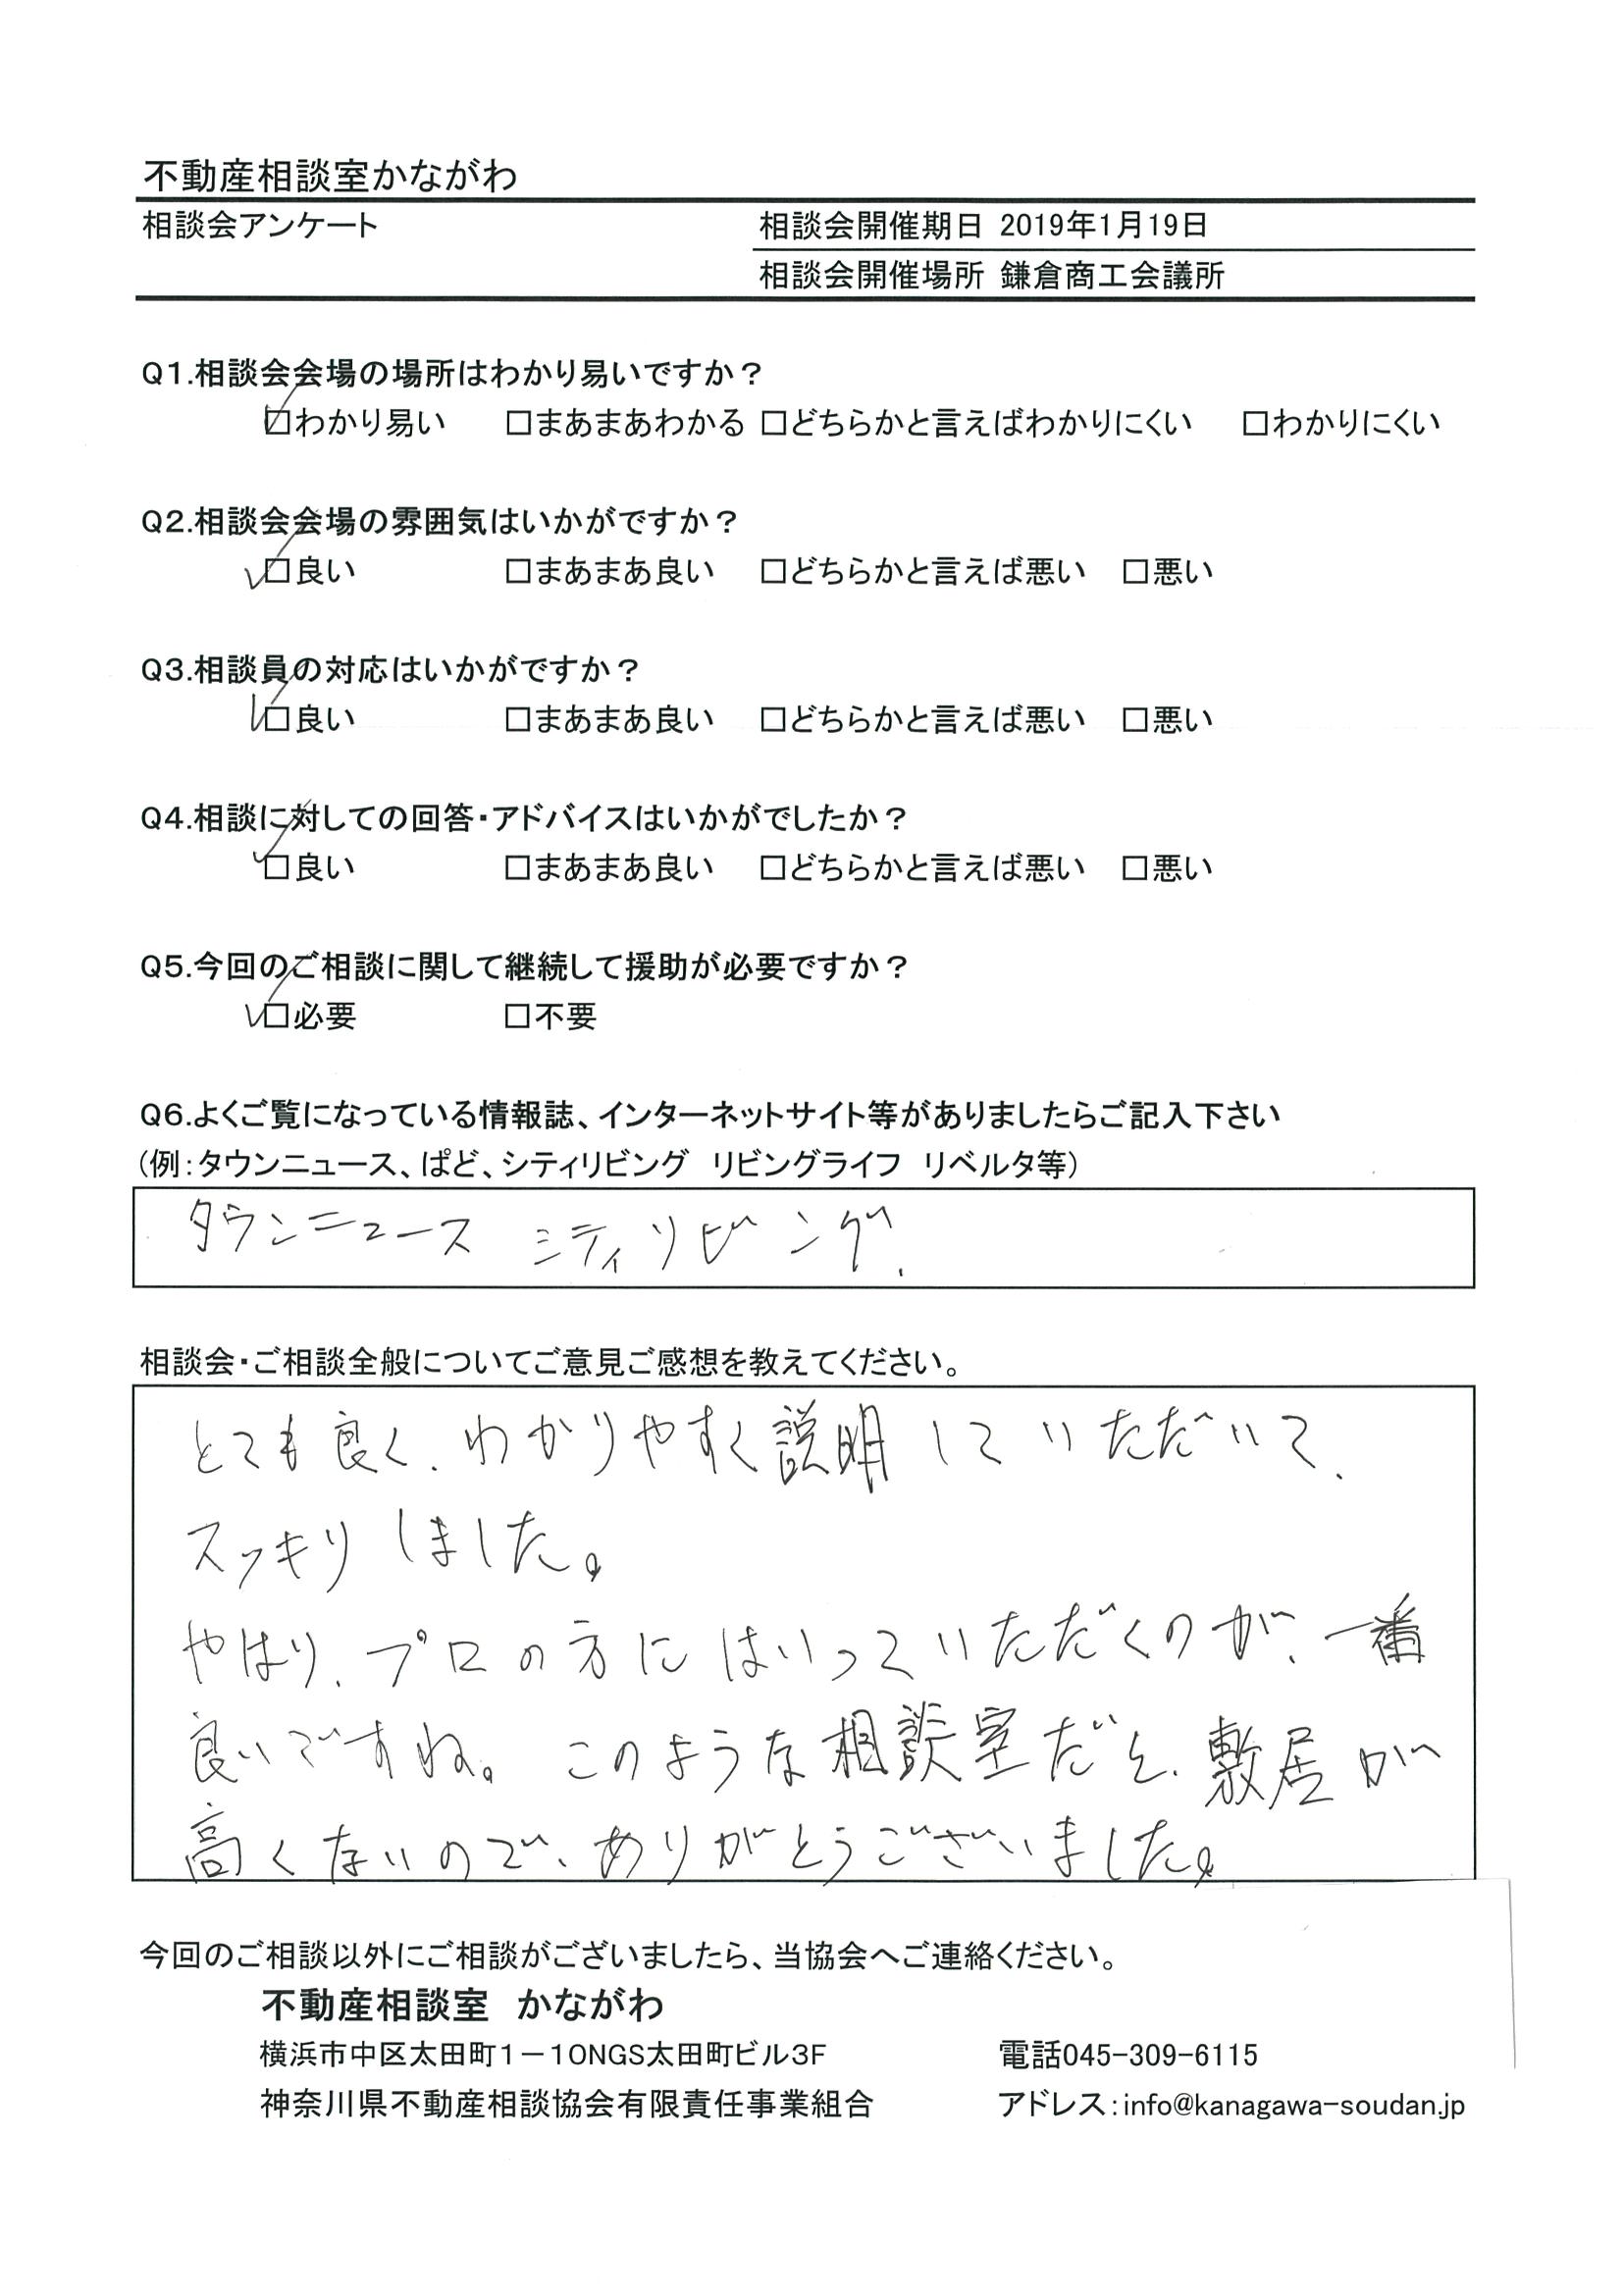 不動産相談室かながわ
相談会アンケート
相談会開催期日 2019年1月19日
相談会開催場所 鎌倉商工会議所
Q1.相談会会場の場所はわかり易いですか？
☑わかり易い □まあまあわかる □どちらかと言えばわかりにくい □わかりにくい
Q2.相談会会場の雰囲気はいかがですか？
☑良い □まあまあ良い □どちらかと言えば悪い □悪い
Q3.相談員の対応はいかがですか？
☑良い □まあまあ良い □どちらかと言えば悪い □悪い
Q4.相談に対しての回答・アドバイスはいかがでしたか？
☑良い □まあまあ良い □どちらかと言えば悪い □悪い
Q5.今回のご相談に関して継続して援助が必要ですか？
☑必要 □不要
Q6.よくご覧になっている情報誌、インターネットサイト等がありましたらご記入下さい
(例：タウンニュース、ぱど、シティリビング　リビングライフ　リベルタ等)
タウンニュース シティリビング.
相談会・ご相談全般についてご意見ご感想を教えてください。
とても良く、わかりやすく説明していただいて、
スッキリしました。
やはり、プロの方にはいっていただくのが、一番
良いですね。このような相談室だと、敷居が
高くないので、ありがとうございました。
今回のご相談以外にご相談がございましたら、当協会へご連絡ください。
不動産相談室　かながわ
横浜市中区太田町１－１０NGS太田町ビル３F 電話045-309-6115
神奈川県不動産相談協会有限責任事業組合 アドレス：info@kanagawa-soudan.jp